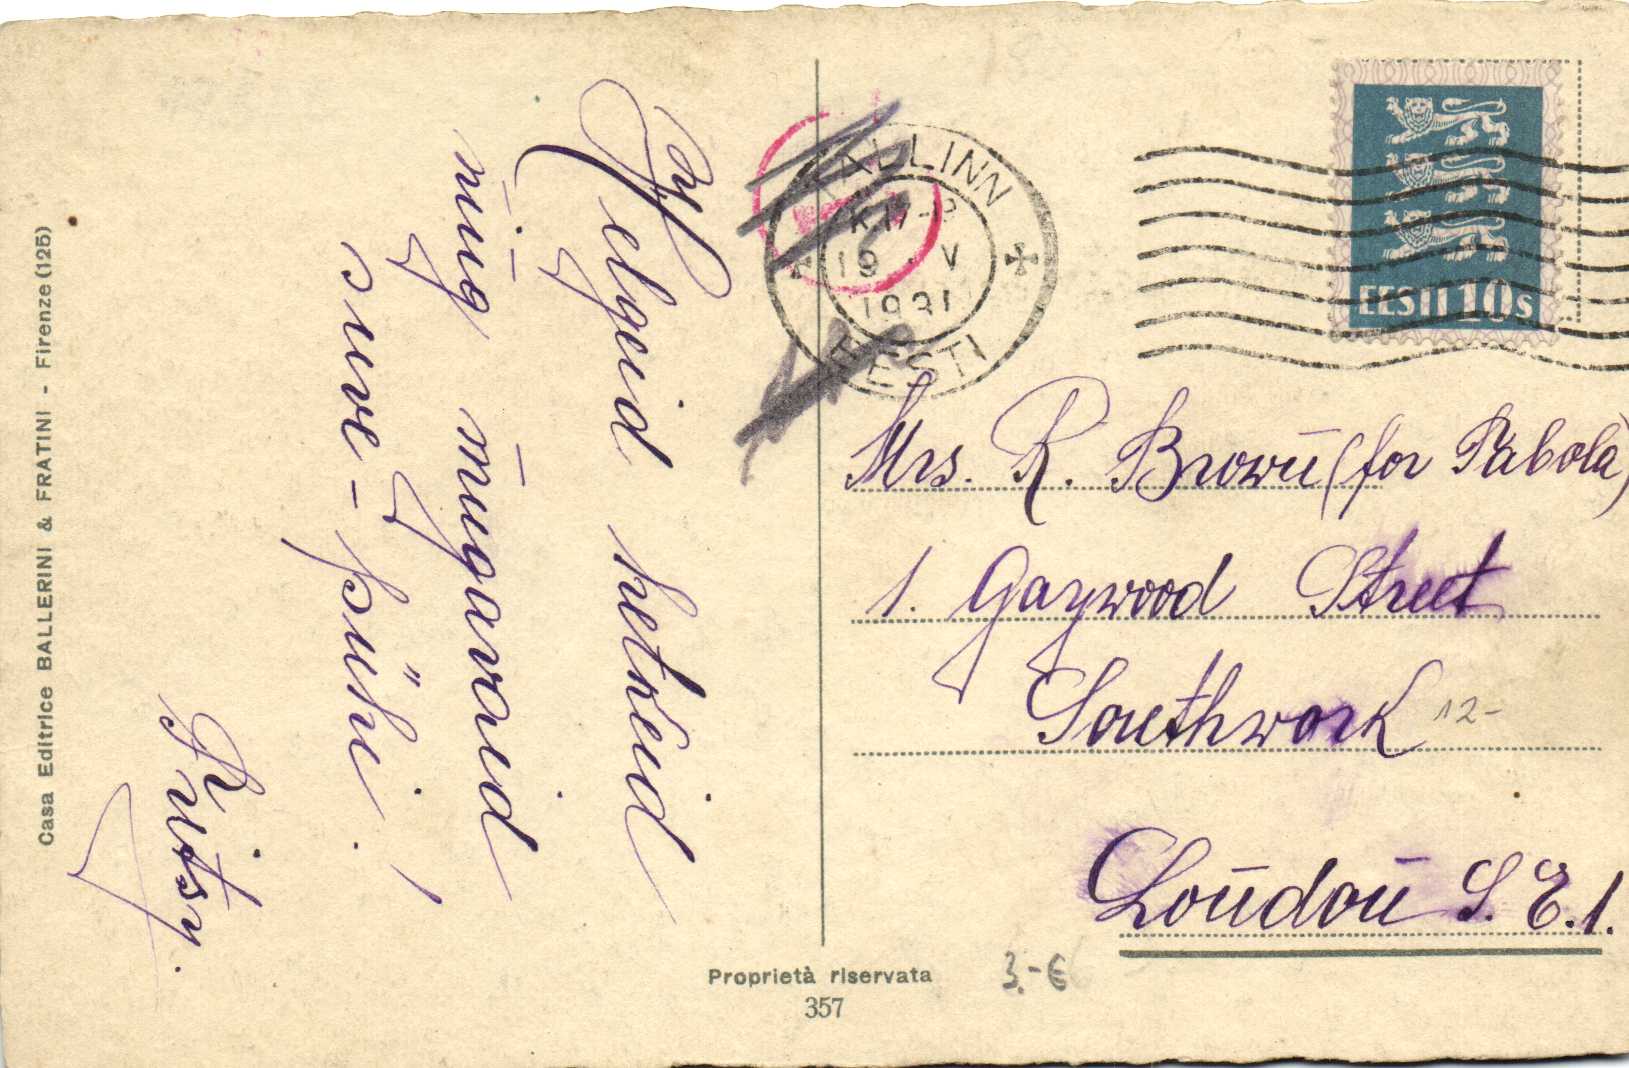 Casa Editrice BALLERINI & FRATINI - Firenze (125)
Helgeid hetkeid
ning mugavaid
suve-pühi!
Ritsy.
TALLINN
19 . V
1931
EESTI
EESTI 10 S
Mrs. R. Brown (for Pabola)
1. Gaywood Street
Southwork
12-
London S. E.1.
Proprietà riservata
357
3.-€